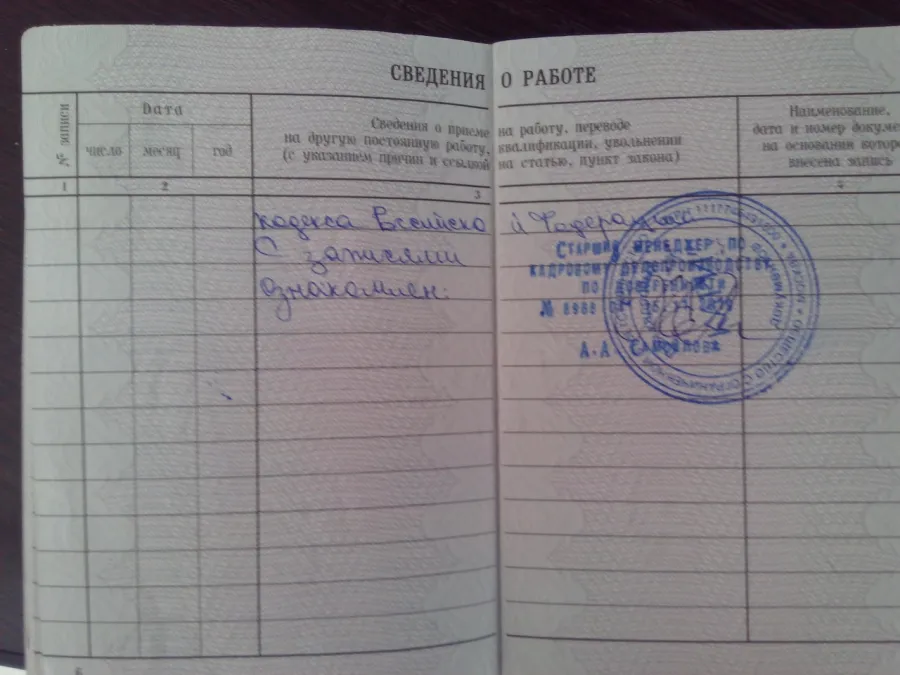 СВЕДЕНИЯ О РАБОТЕ
№ записи
Дата
число месяц год
Сведения о приеме на работу, переводе
на другую постоянную работу, квалификации, увольнении
(с указанием причин и ссылкой на статью, пункт закона)
Наименование,
дата и номер докуме
на основании котор
внесена запись
1 2 3 4
кодекса Российской Федерации
С записями
ознакомлен:
СТАРШИЙ МЕНЕДЖЕР ПО
КАДРОВОМУ ДЕЛОПРОИЗВОДСТВУ
ПО ДОВЕРЕННОСТИ
№ 8988
А.А. САМОЙЛОВА
ОБЩЕСТВО С ОГРАНИЧЕННОЙ
6